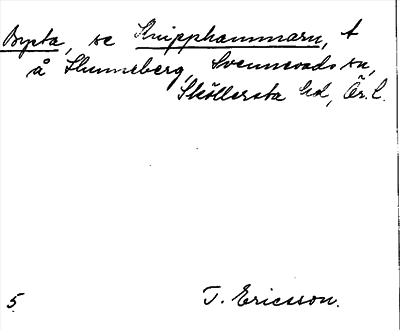 Bypta, se Knipphammarn, t
å Slunneberg, Svennevads sn,
Sköllersta hd, Ör. l.
5
T. Ericsson.